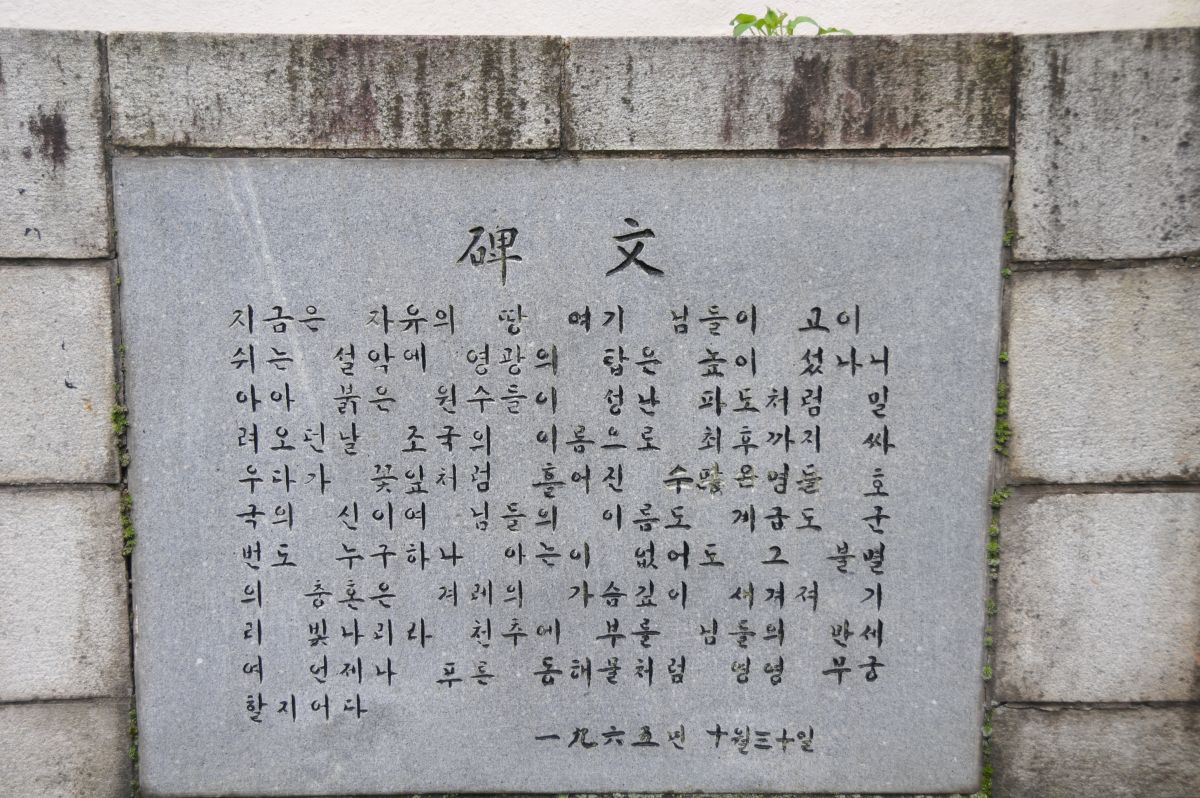 碑 文
지금은 자유의 땅 여기 님들이 고이
쉬는 설악에 영광의 탑은 높이 섰나니
아아 붉은 원수들이 성난 파도처럼 밀
려오던날 조국의 이름으로 최후까지 싸
우다가 꽃잎처럼 흩어진 수많은영들 호
국의 신이여 님들의 이름도 계급도 군
번도 누구하나 아는이 없어도 그 불별
의 충혼은 겨레의 가슴깊이 새겨져 기
리 빛나리라 천추에 부를 님들의 만세
여 언제나 푸른 동해물처럼 영영 무궁
할지어다
一九六五년 十월三十일